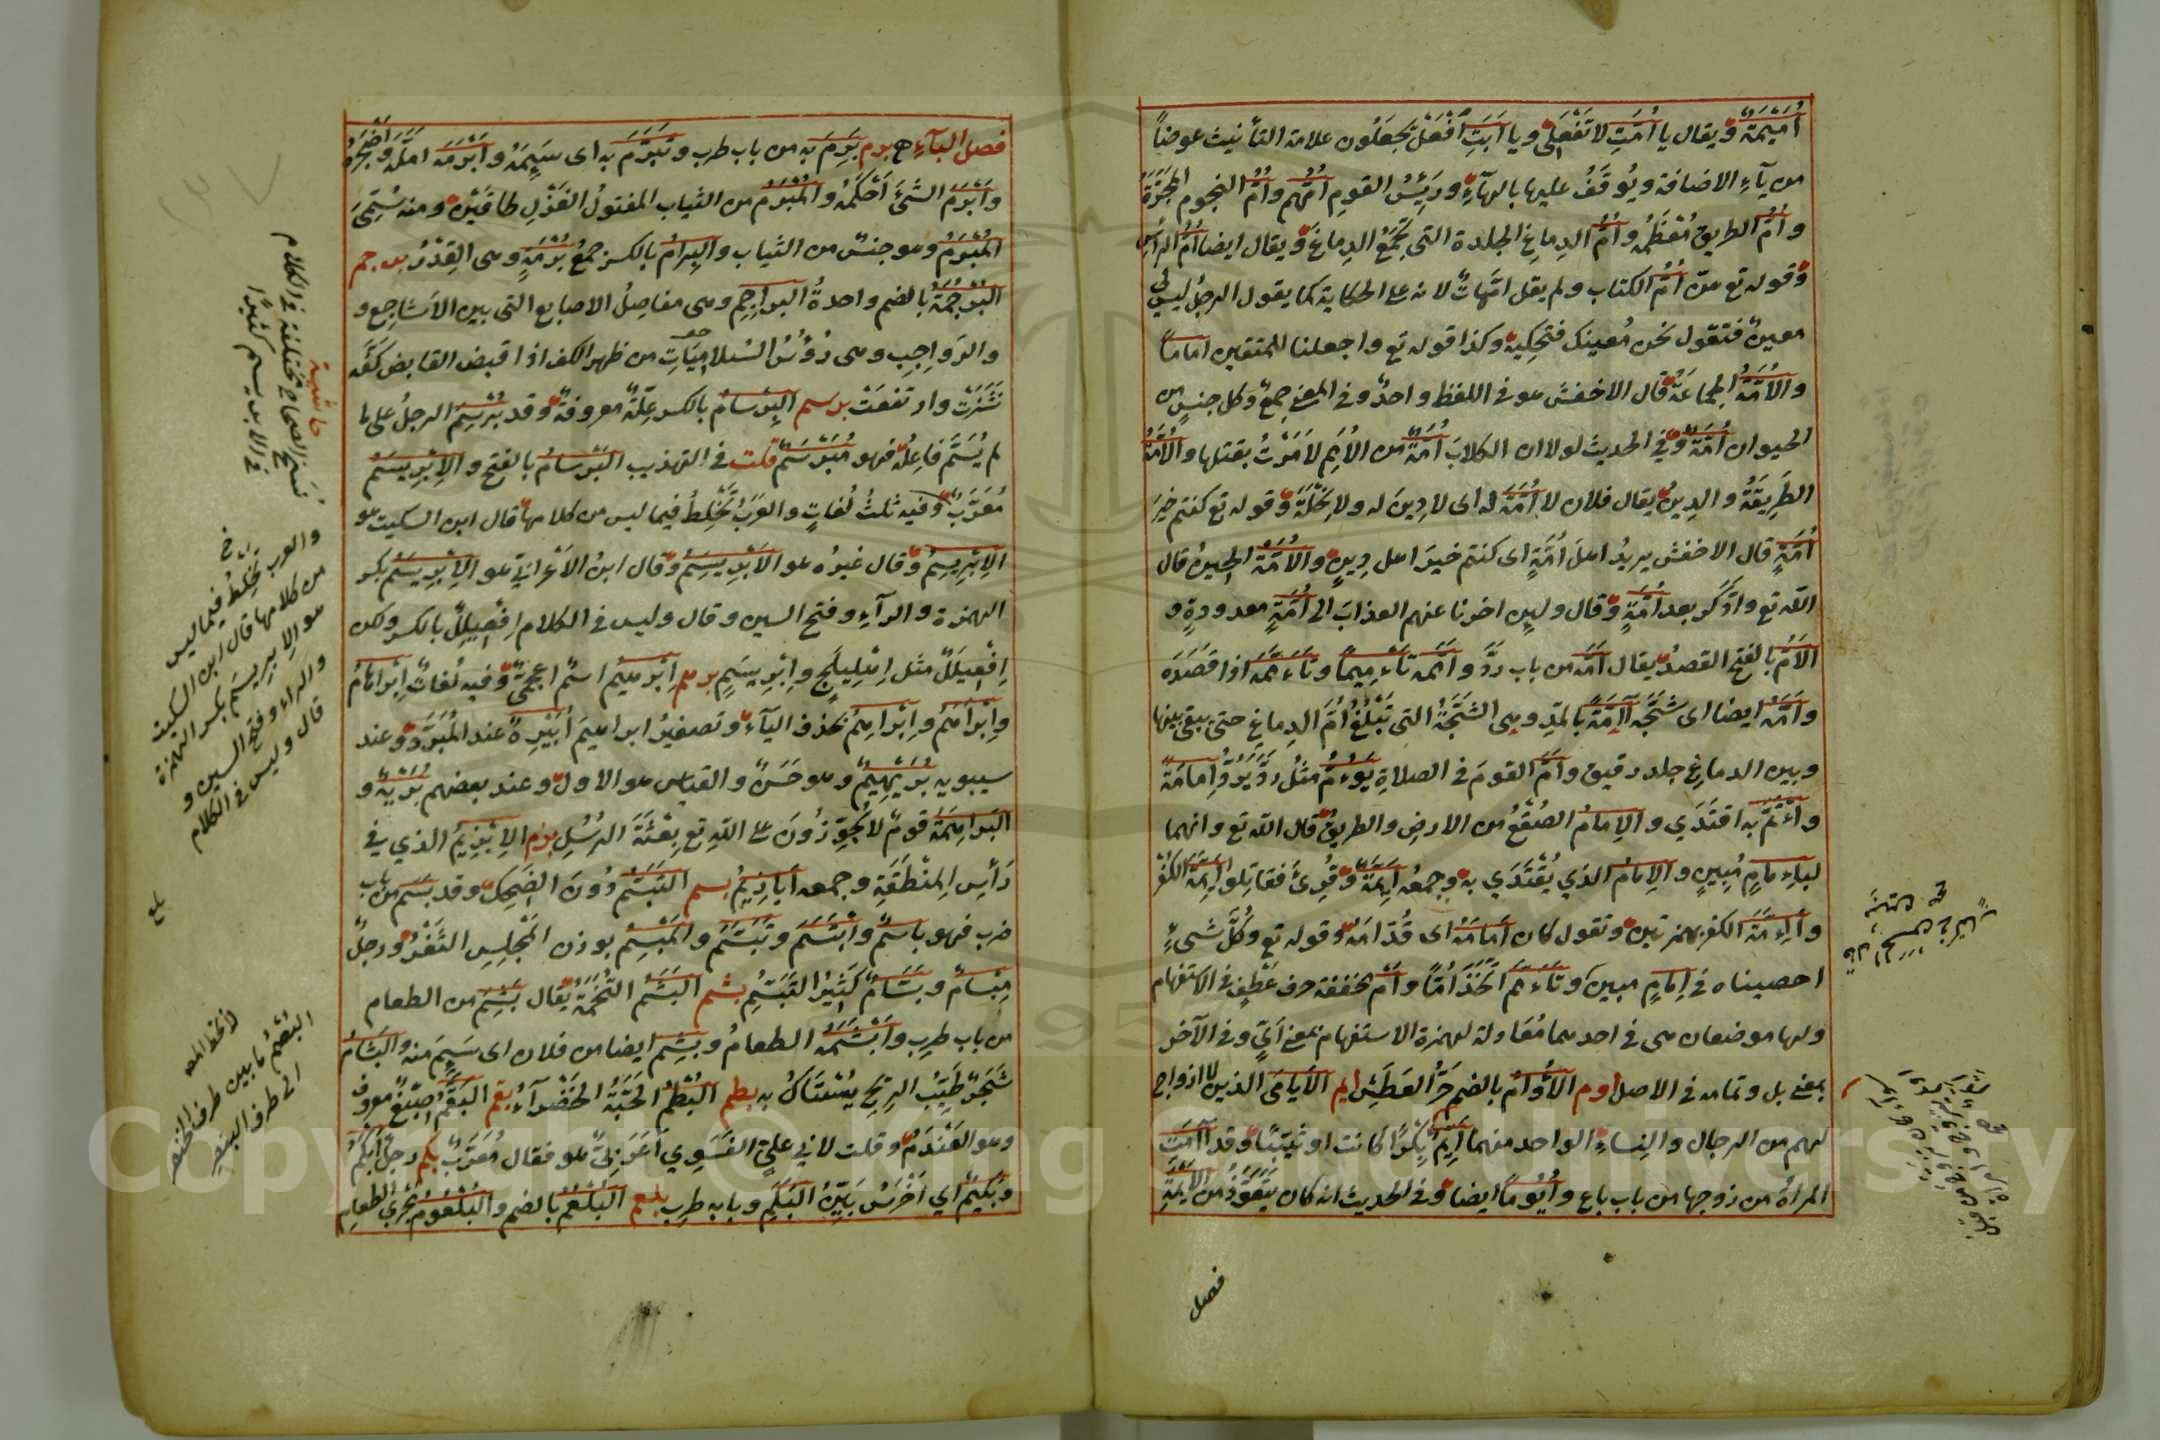 أُمَيْمَةٌ ويقال يا أُمَّتِ لا تَفْعَلِي ويا أَبَتِ افْعَلْ يجعَلُون علامة التأنيث عوضاً
من يآءِ الاضافة ويُوقَفُ عليها بالهآءِ ورَئِيسُ القومِ أُمُّهم وأُمُّ النجوم المَجَرَّةُ
وأُمُّ الطريقِ مُعْظَمُه وأُمُّ الدِماغ الجلدة التي تَجْمَعُ الدِماغَ ويقال ايضا أُمُّ الرأسِ
وقوله تع هنّ أُمُّ الكتاب ولم يقل امّهاتُ لانه على الحكاية كما يقول الرجلُ ليس لي
معينٌ فتقول نحن مُعينك فتحكيه وكذا قوله تع واجعلنا للمتقين اماماً
والأُمَّةُ الجماعَةُ قال الاخفش هو في اللفظ واحدٌ وفي المعنى جمعٌ وكل جنسٍ من
الحيوان أُمَّةٌ وفي الحديث لولا ان الكلابَ أُمَّةٌ من الأُمَمِ لأَمَرْتُ بقتلها والأُمَّةُ
الطَرِيقَةُ والدِينُ يقال فلان لا أُمَّةَ له اى لا دِينَ له ولا نِحْلَةَ وقوله تع كنتم خيرَ
أُمَّةٍ قال الاخفش يريدُ اهلَ أُمَّةٍ اى كنتم خيرَ اهل دِينٍ والأُمَّةُ الحينُ قال
الله تع وادَّكَر بعد أُمَّةٍ وقال ولئن اخرنا عنهم العذابَ الى أُمَّةٍ معدودةٍ و
الأَمُّ بالفتح القصدُ يقال أَمَّه من باب رَدَّ وأَمَّمه تأْمِيماً وتَأَمَّمَه اذا قَصَدَه
وأَمَّهُ ايضا اى شَجَّه آمَّةً بالمدِّ وهى الشَجَّةُ التي تَبْلُغُ أُمَّ الدِماغِ حتى يبقى بينها
وبين الدماغِ جلد رقيق وأَمَّ القومَ في الصلاةِ يَؤُمُّ مثلُ ردَّ يَرُدُّ إِمامَةً
وأْتَمَّ به اقتَدَي والإِمامُ الصُقْعُ من الارضِ والطريقُ قال الله تع وانهما
لبإِمامٍ مُبِينٍ والإِمامُ الذي يُقْتَدَي به وجمعُه أَيِمَّةٌ وقُرِئَ فقاتِلوا أَيِمَّةَ الكُفْر
وأَئِمَّةَ الكفر بهمزتين وتقول كان أَمامَهُ اى قُدّامَه وقوله تع وكُلَّ شىءٍ
احصيناه في إِمامٍ مبين وتَأَمَّمَ اتَّخَذَ أُمّاً وأَمْ مخففة حرف عَطْفٍ في الاستفهام
ولها موضعان هى في احدهما مُعَادلة لهمزة الاستفهام بمعنى أَيٍّ وفي الآخر
بمعنى بل وتمامه في الاصل اوم الأُوامُ بالضم حَرُّ العَطَشِ ايم الأَيامَى الذين لا ازواج
لهم من الرجال والنِساءِ الواحد منهما أَيِّمٌ بِكْراً كانت او ثَيِّبًا وقد آمَتِ
المراةُ من زوجها من باب باع وأُيُوماً ايضا وفي الحديث انه كان يَتَعَوَّذُ من الأَيْمَةِ
فصل
فصل البآءِ برم بَرِمَ به من باب طرب وتَبَرَّمَ به اى سَئِمَهُ وأَبْرَمَه امَلَّه وأَضْجَرَهُ
وأَبْرَمَ الشَئَ أَحْكَمَهُ والمُبْرَمُ من الثياب المفتولُ الغَزْلِ طاقَيْن ومنه سُمِّيَ
المُبْرَمُ وهو جنسٌ من الثياب والبِرامُ بالكسر جمعُ بُرْمَةٍ وهى القِدْرُ برجم
البُرْجُمَةُ بالضم واحدةُ البراجِمِ وهى مفاصِلُ الاصابع التي بين الأشاجِعِ و
والرَواجِبِ وهى رُؤُسُ السُلامِيَّاتِ من ظهر الكف اذا قبض القابض كَفَّه
نَشَزَتْ وارتفعَتْ برسم البِرْسامُ بالكسر عِلّةٌ معروفةٌ وقد بُرْسِمَ الرجلُ على ما
لم يُسَمَّ فاعِلُه فهو مُبَرْسَمٌ قلت في التهذيب البَرْسامُ بالفتح والإِبْرِيسَمُ
مُعَرَّبٌ وفيه ثلثُ لُغاتٍ والعَرَبُ تَخْلِطُ فيما ليس من كلامها قال ابن السكيت هو
الإِبْرِيسِمُ وقال غيرُه هو الأَبْرِيسِمُ وقال ابنُ الأَعْرابِيِّ هو الإِبْرِيسَمُ بكسر
الهمزة والرآءِ وفتح السين وقال وليس في الكلام إِفْعِيلِلٌ بالكسر ولكن
إِفْعِيلَلٌ مثل إِهْلِيلَجٍ وإِبْرِيسَمٍ برهم إِبْرهيمُ اسمٌ اعجمىٌّ وفيه لُغاتٌ إِبْراهامُ
وإِبْراهَمُ وإِبْراهِمُ بحذف اليآءِ وتصغيرُ ابراهيمَ أُبَيْرِهٌ عند المُبَرَّدِ وعند
سيبويه بُرَيْهِيمٌ وهو حَسَنٌ والقياس هو الاول وعند بعضهم بُرَيْهٌ و
البَراهِمَةُ قومٌ لا يُجَوِّزُونَ على اللهِ تع بِعْثَةَ الرُسُلِ بزم الإِبْزِيمُ الذي في
رَأْسِ المِنْطَقَةِ وجمعه أَبازِيمُ بسم التَبَسُّمُ دُونَ الضَحِكِ وقد بَسَمَ من باب
ضرب فهو باسِمٌ وابْتَسَمَ وتَبَسَّمَ والمَبْسِمُ بوزن المَجْلِسِ الثَغْرُ ورجلٌ
مِبْسامٌ وبَسّامٌ كَثِيرُ التَبَسُّمِ بشم البَشَمُ التُخَمَةُ يقال بَشِمَ من الطعام
من باب طرب وأَبْشَمَهُ الطعامُ وبَشِمَ ايضا من فلان اى سَئِمَ منه والبَشامُ
شَجَرٌ طَيِّبُ الريحِ يُسْتَاكُ به بطم البُطْمُ الحَبَّةُ الخَضْرآءُ بقم البَقَّمُ صِبْغٌ معروف
وهو العَنْدَمُ وقلت لابي عليٍّ الفَسَوِي أَعَرَبِيٌّ هو فقال مُعَرَّبٌ بكم رجلٌ أَبْكَمُ
وبَكِيمٌ اى أَخْرَسُ بَيِّنُ البَكَمِ وبابه طرب بلعم البُلْعُمُ بالضم والبُلْعُومُ مَجْرَى الطعامِ
حاشية
نسخ الصحاح مختلفة في الكلام
في الابريسم كثيرًا
والعرب تَخْلِطُ فيما ليس
من كلامها قال ابن السكيت
هو الإبريسَم بكسر الهمزة
والراء وفتح السين و
قال وليس في الكلام
بلغ
البُصْمُ ما بين طرف الخنصر
الى طرف البنصر